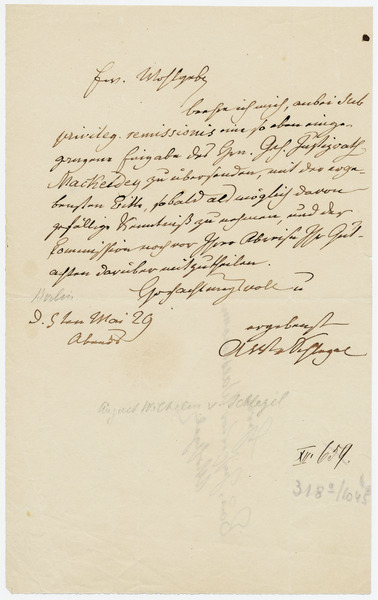 Ew. Wohlgeb.
beehre ich mich, anbei sub
privileg. remissionis eine so eben einge-
gangene Eingabe des Hrn. Geh. Justizrath
Mackeldey zu übersenden, mit der erge-
bensten Bitte, sobald als möglich davon
gefällige Kenntniß zu nehmen, und der
Commission noch vor Ihrer Abreise Ihr Gut-
achten darüber mitzutheilen.
Hochachtungsvoll u
Berlin
d. 5ten Mai 29
Abends
ergebenst
AWvSchlegel
August Wilhelm v. Schlegel
XVI. 659.
318